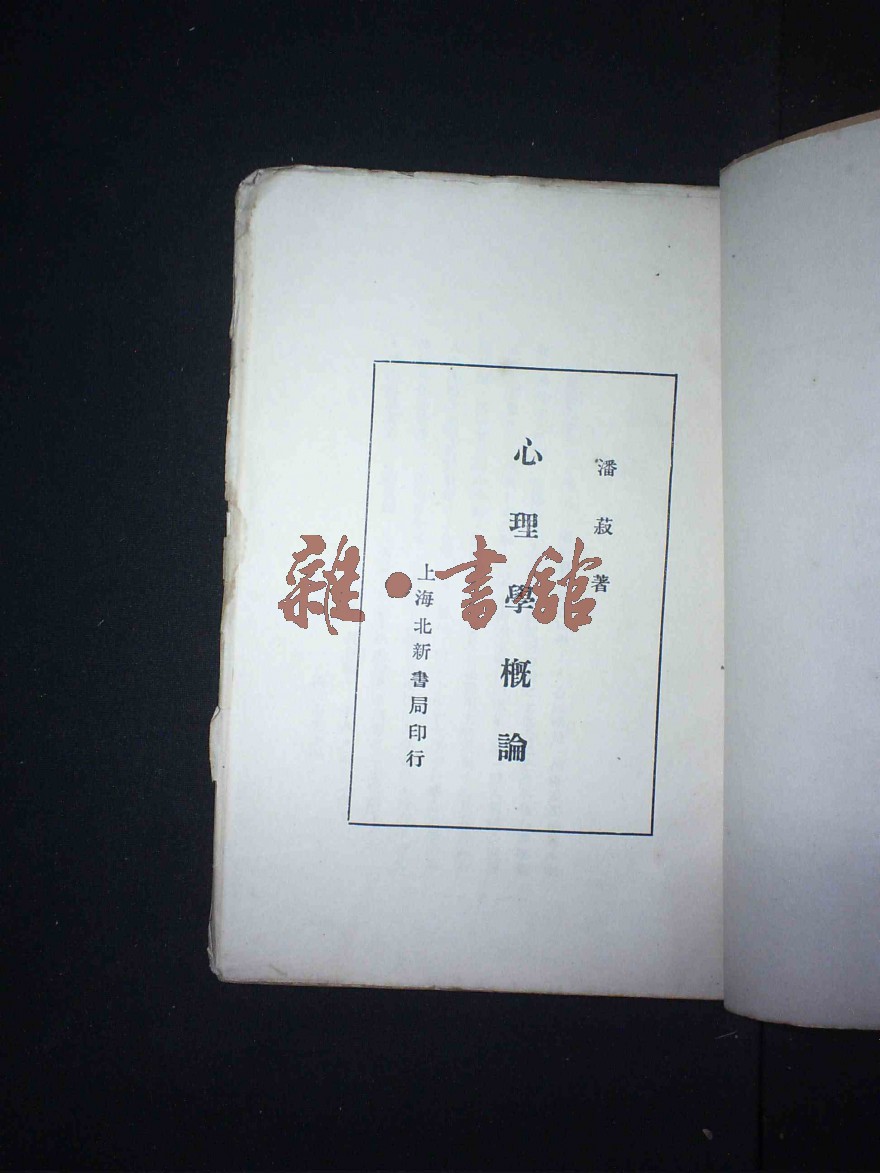 潘菽著
心理學概論
上海北新書局印行
雜·書館